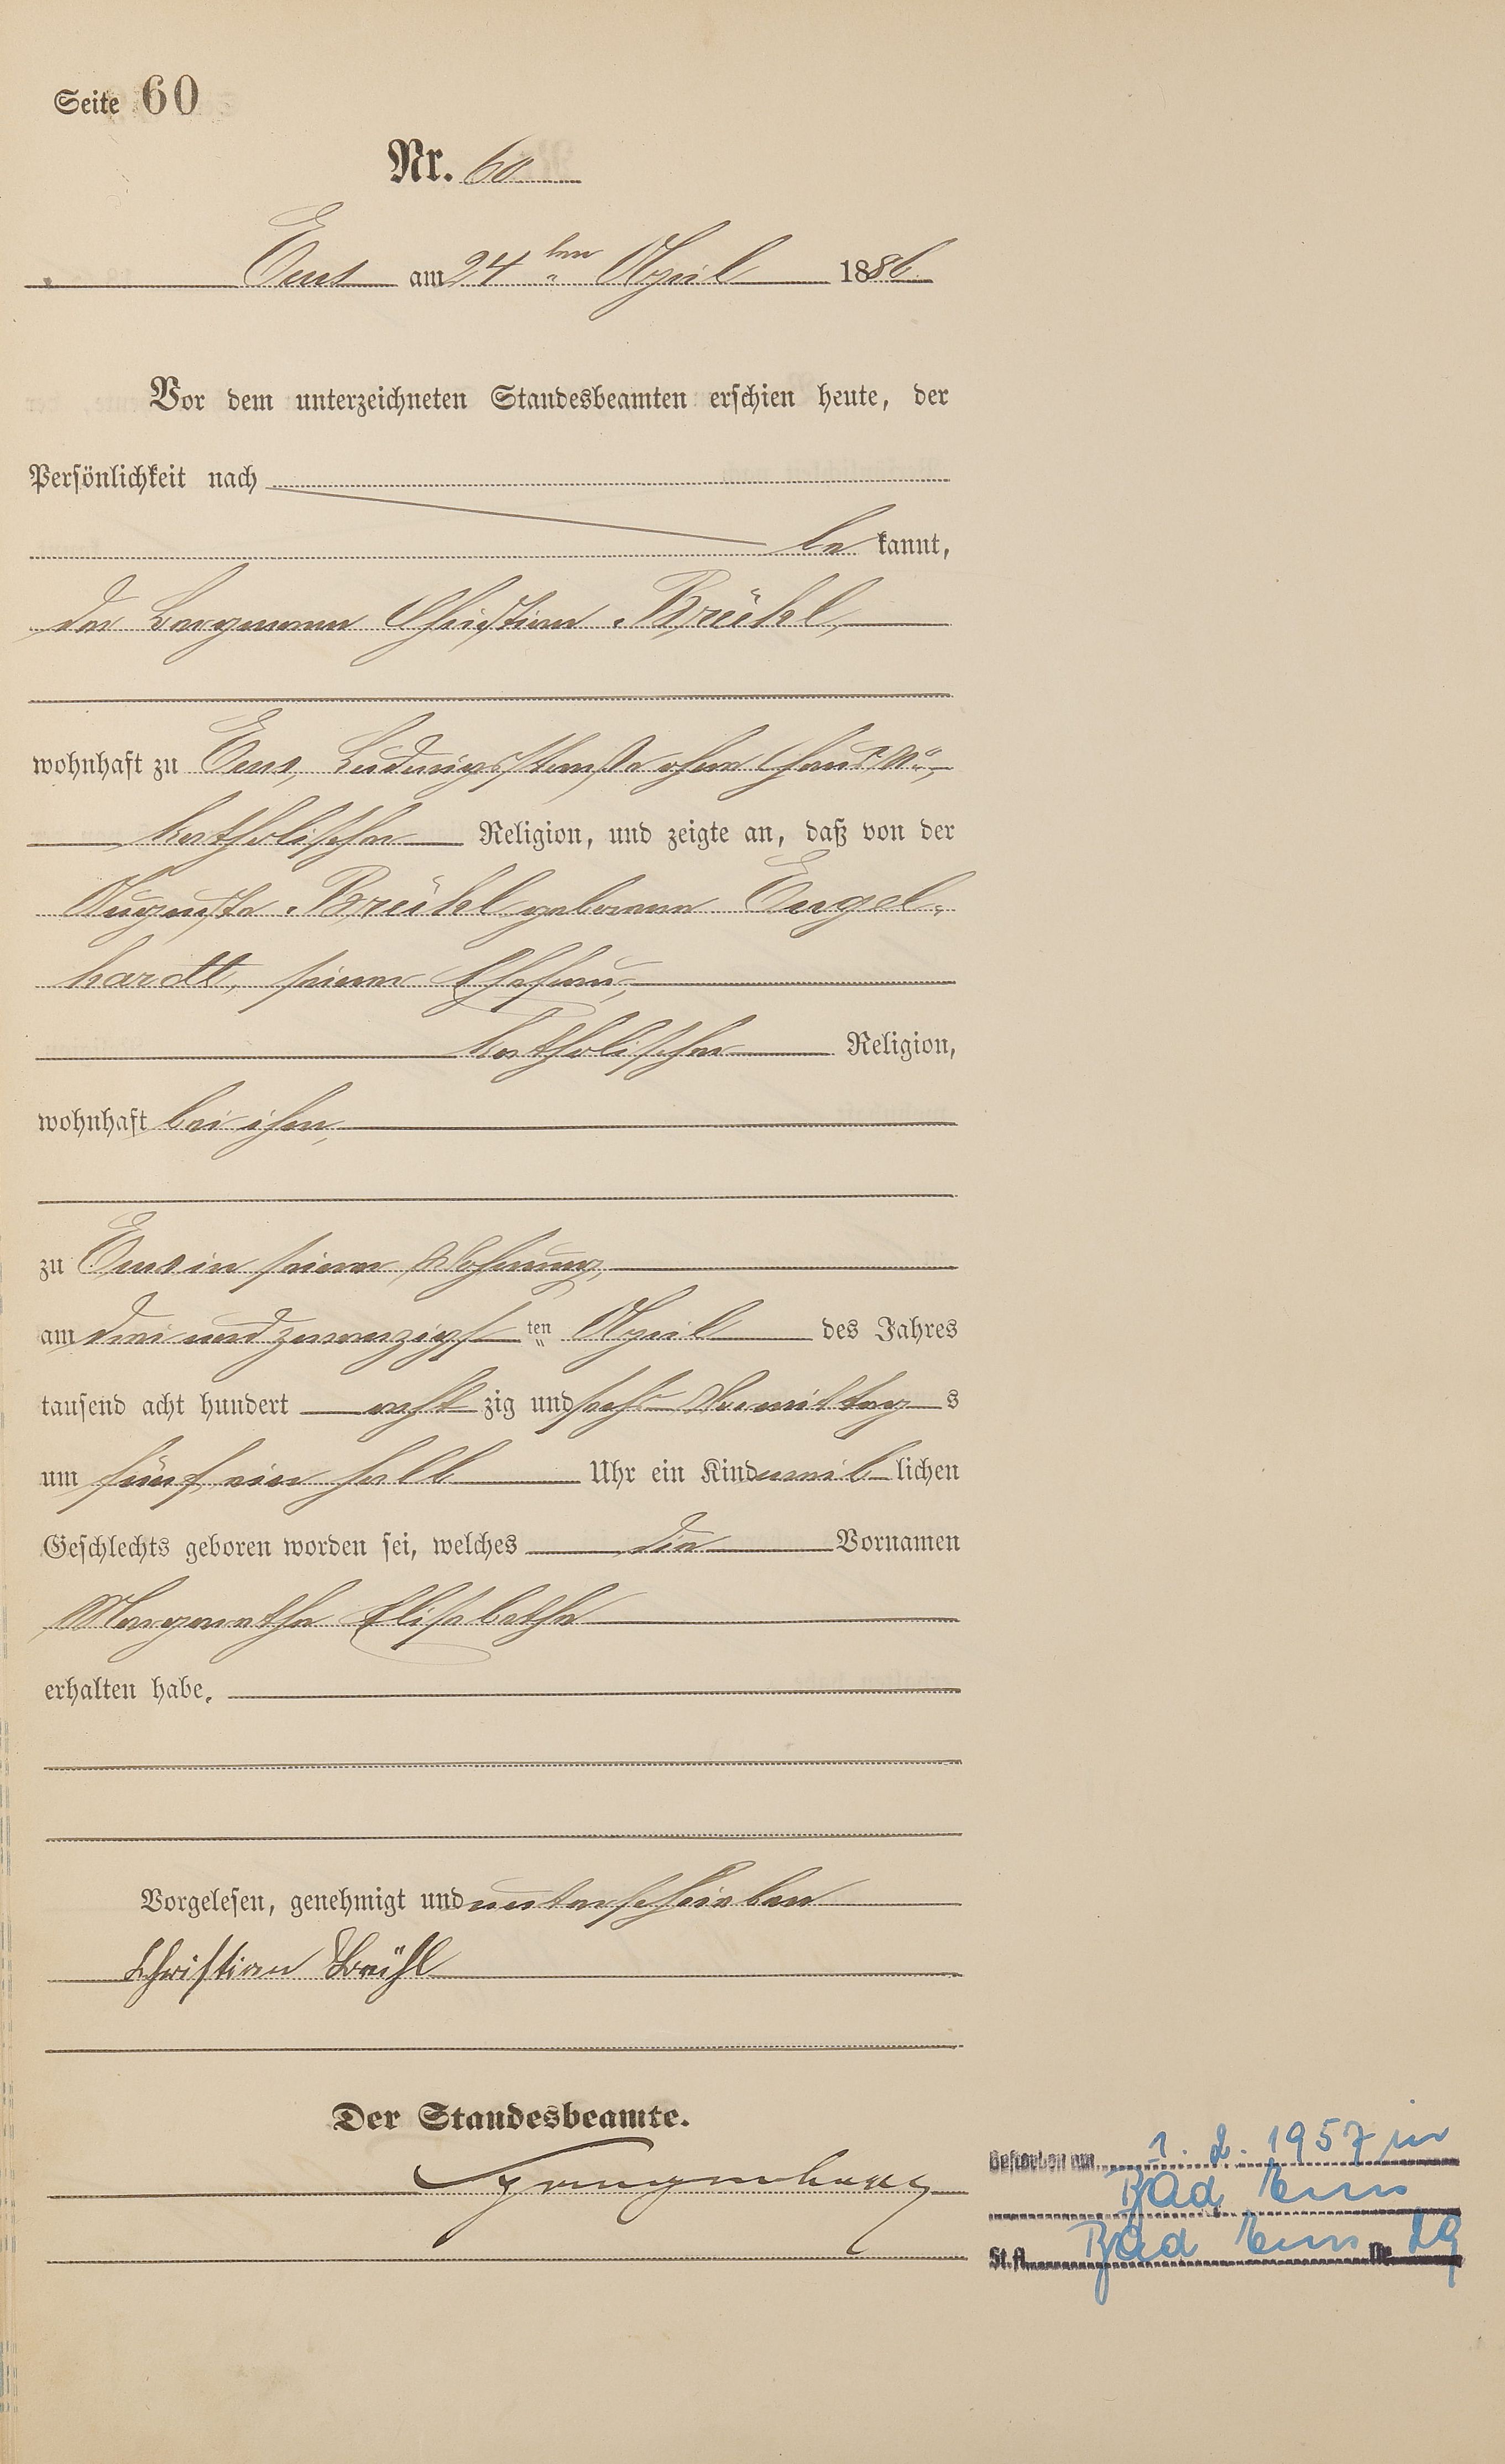 Seite 60
Nr. 60
Ems am 24ten April 1886
Vor dem unterzeichneten Standesbeamten erschien heute, der
Persönlichkeit nach
be kannt,
der Bergmann Christian Brühl,
wohnhaft zu Ems, Ludwigsstraße ohne Haus No,
katholischer Religion, und zeigte an, daß von der
Auguste Brühl geborene Engel-
hardt, seiner Ehefrau,
katholischer Religion,
wohnhaft bei ihm,
zu Ems in seiner Wohnung,
am drei und zwanzigsten April des Jahres
tausend acht hundert acht zig und sechs Vormittags
um fünf ein halb Uhr ein Kind weib lichen
Geschlechts geboren worden sei, welches die Vornamen
Margaretha Elisabetha
erhalten habe.
Vorgelesen, genehmigt und unterschrieben
Christian Brühl
Der Standesbeamte.
Gestorben am 1. 2. 1957 in
Bad Ems
St.A. Bad Ems Nr. 29